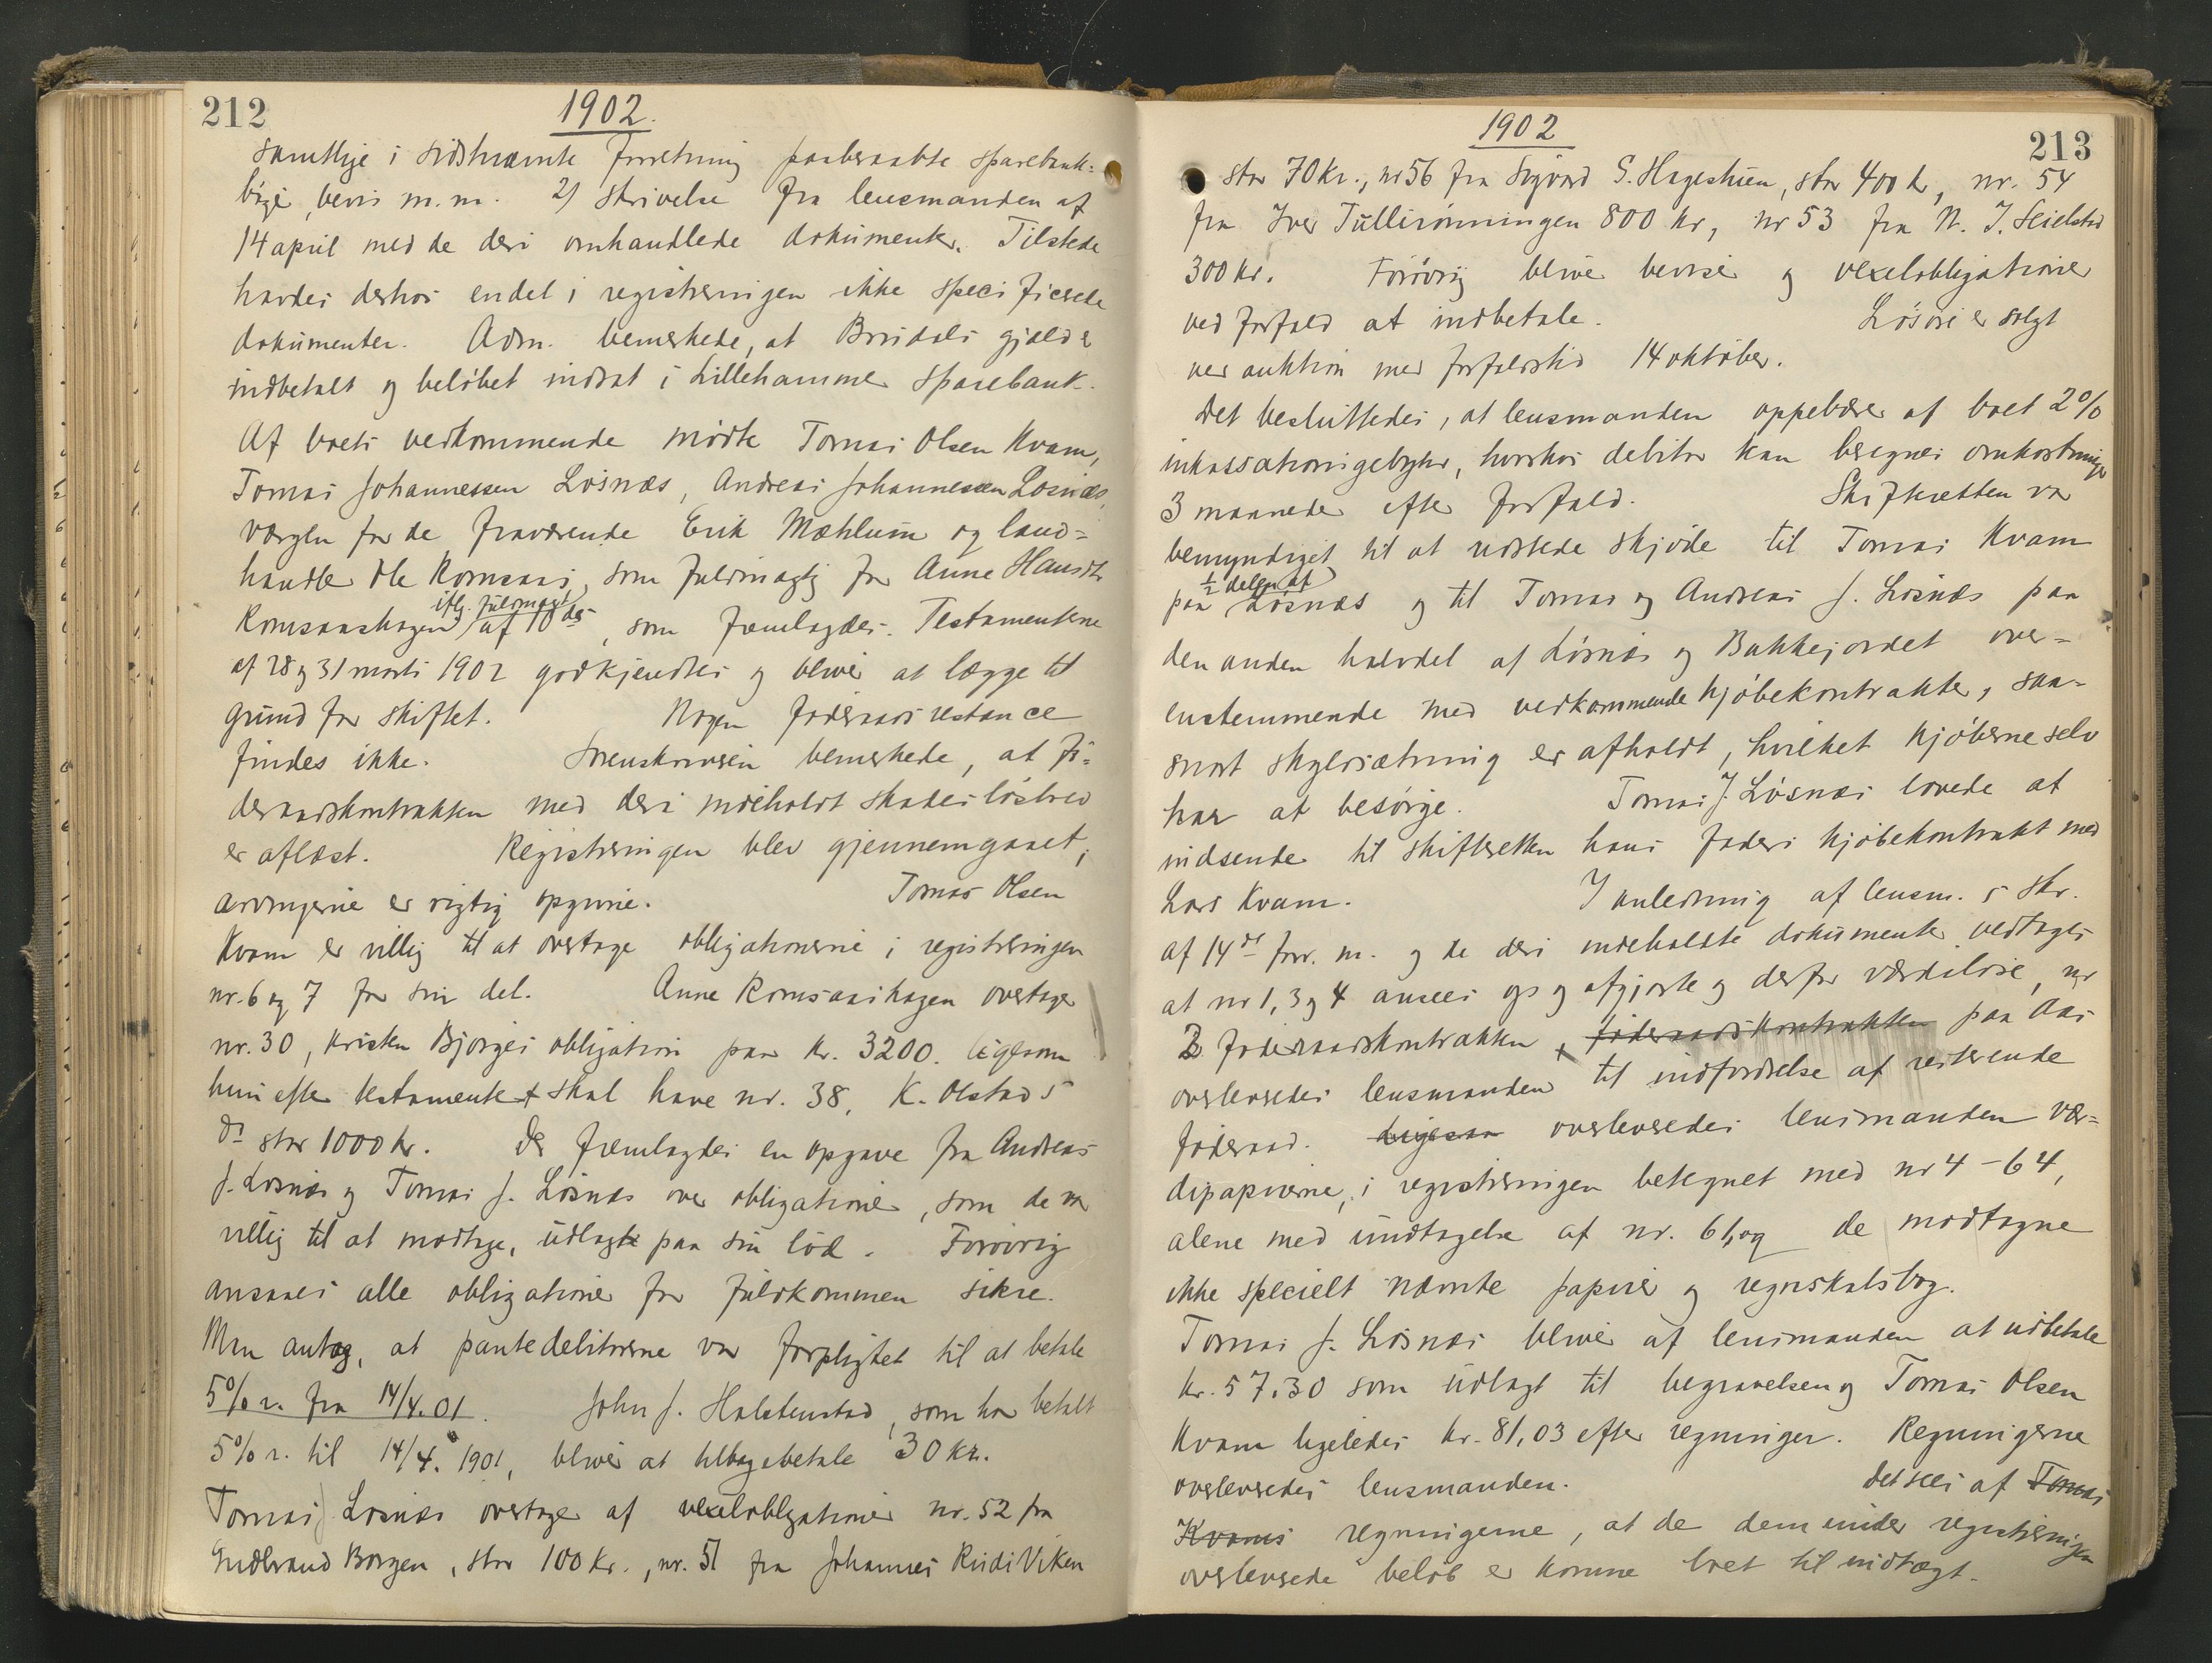 212
1902.
samtlige i sidstnævnte forretning paaberaabte sparebank-
bøger, bevis m.m. 2) skrivelse fra lensmanden af
14 april med de deri omhandlede dokumenter. Tilstede
havdes derhos endel i registreringen ikke specificerede
dokumenter. Adm. bemerkede, at Brudals gjæld er
indbetalt og beløbet indsat i Lillehammer sparebank.
Af boets vedkommende mødte Tomas Olsen Kvam,
Tomas Johannessen Løsnæs, Andreas Johannessen Løsnæs,
værgen for de fraværende Erik Mæhlum og land-
handler Ole Romsaas, som fuldmægtig for Anne Hansdtr
Romsaashagen iflg. fuldmagt af 10 ds, som fremlagdes. Testamenterne
af 28 og 31 marts 1902 godkjendtes og bliver at lægge til
grund for skiftet. Nogen føderaadsrestance
findes ikke. Sorenskriveren bemerkede, at fø-
deraadskontrakten med deri indeholdt skadesløsbrev
er aflæst. Registreringen blev gjennemgaaet,
arvingerne er rigtig opgivne. Tomas Olsen
Kvam er villig til at overtage obligationerne i registreringen
nr. 6 og 7 for sin del. Anne Romsaashagen overtager
nr. 30, Kristen Bjørges obligation paa kr. 3200. ligesom
hun efter testamentet skal have nr. 38, K. Olstads
do stor 1000 kr. Der fremlagdes en opgave fra Andreas
J. Løsnæs og Tomas J. Løsnæs over obligationer, som de var
villig til at modtage, udlagte paa sin lod. Forøvrig
ansaaes alle obligationer for fuldkommen sikre.
Man antog, at pantedebitorerne var forpligtet til at betale
5% r. fra 14/4. 01. John J. Halstenstad, som har betalt
5% r. til 14/4. 1901, bliver at tilbagebetale 30 kr.
Tomas J Løsnæs overtager af vexelobligationer nr. 52 fra
Gudbrand Borgen, stor 100 kr., nr. 51 fra Johannes Rudi Viken
1902
213
stor 70 kr., nr 56 fra Sigvard S. Hagestuen, stor 400 kr, nr. 54
fra Iver Tullirønningen 800 kr, nr 53 fra N. J. Seielstad
300 kr. Forøvrig bliver beviser og vexelobligationer
ved forfald at indbetale. Løsøre er solgt
ved auktion med forfaldstid 14 oktober.
Det besluttedes, at lensmanden oppebærer af boet 2%
inkassationsgebyhr, hvorhos debitor kan beregnes omkostninger
3 maaneder efter forfald. Skifteretten var
bemyndiget til at udstede skjøde til Tomas Kvam
paa 1/2 delen af Løsnæs og til Tomas og Andreas J. Løsnæs paa
den anden halvdel af Løsnæs og Bakkejordet over-
enstemmende med vedkommende kjøbekontrakter, saa-
snart skyldsætning er afholdt, hvilket kjøberne selv
har at besørge. Tomas J. Løsnæs lovede at
indsende til skifteretten hans faders kjøbekontrakt med
Lars Kvam. I anledning af lensm.s skr.
af 14de forr. m. og de deri indeholdte dokumenter vedtages
at nr 1, 3 og 4 ansees op og afgjorte og derfor værdiløse, nr
2 føderaadskontrakten, føderaadskontrakten paa Aas
overleveredes lensmanden til indfordrelse af resterende
føderaad. Ligesaa overleveredes lensmanden vær-
dipapirerne, i registreringen betegnet med nr 4-64,
alene med undtagelse af nr. 61, og de modtagne
ikke specielt nævnte papirer og regnskabsbog.
Tomas J. Løsnæs bliver af lensmanden at udbetale
kr. 57.30 som udlagt til begravelsen og Tomas Olsen
Kvam ligeledes kr. 81,03 efter regninger. Regningerne
overleveredes lensmanden. Det sees af Tomas
Kvams regningerne, at de dem under registreringen
overleverede beløb er komne boet til indtægt.